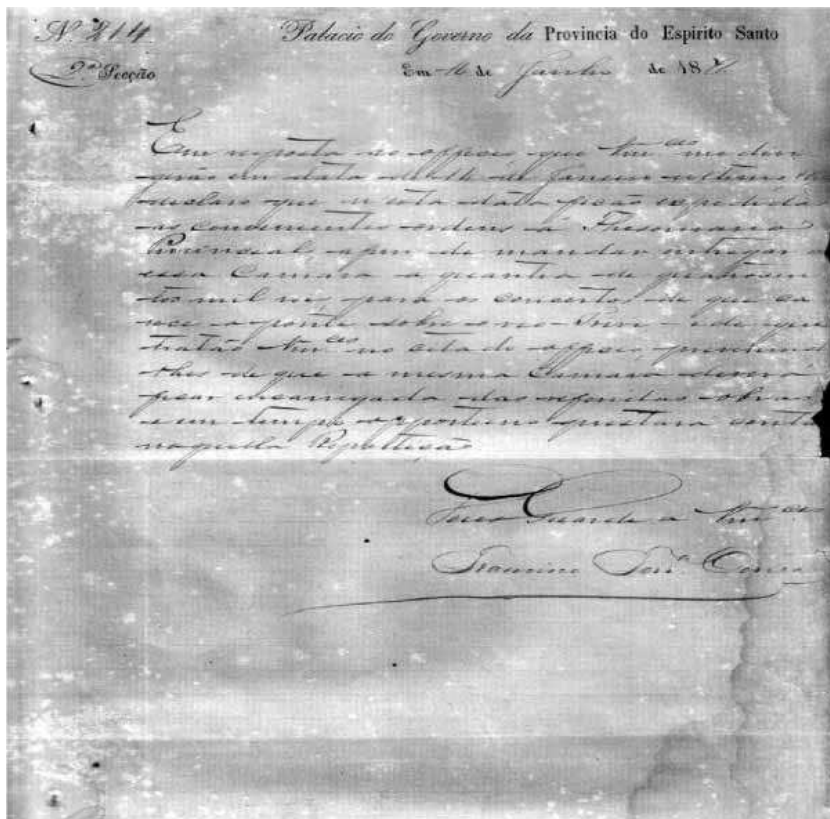 N. 214 Palacio do Governo da Provincia do Espirito Santo
2ª Secção Em 16 de Junho de 18
Em resposta ao officio que Vmces me diri
girão em data de 16 de Janeiro ultimo
declaro que n'esta data ficão expedidas
as convenientes ordens á Thesouraria
Provincial, afim de mandar entregar a
essa Camara a quantia de quatrocen
tos mil reis para os concertos de que ca
rece a ponte sobre o rio e de que
tratão Vmces no citado officio, prevenindo
lhes de que a mesma Camara deverá
ficar encarregada das referidas obras
e em tempo opportuno prestará conta
naquella Repartição
Deos Guarde a Vmces
Francisco Corrêa